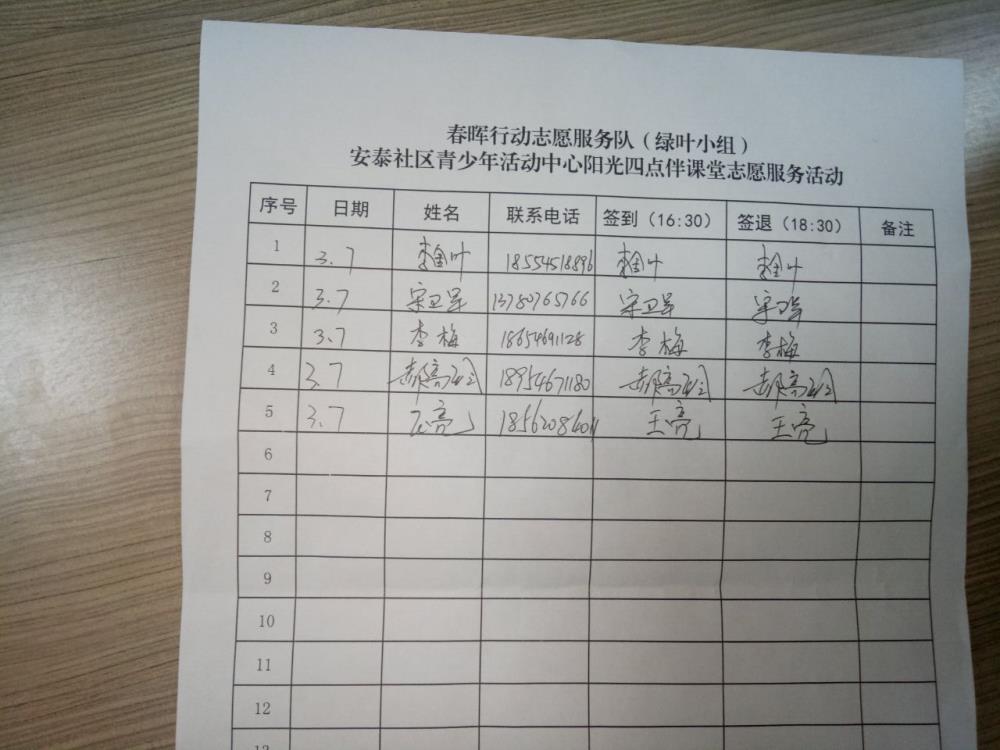 春晖行动志愿服务队（绿叶小组）
安泰社区青少年活动中心阳光四点伴课堂志愿服务活动
序号 日期 姓名 联系电话 签到（16:30） 签退（18:30） 备注
1 3.7 李金叶 18554518896 李金叶 李金叶
2 3.7 宋卫军 13780765766 宋卫军 宋卫军
3 3.7 李梅 18654691128 李梅 李梅
4 3.7 18954671180
5 3.7 王亮 王亮 王亮
6
7
8
9
10
11
12
13